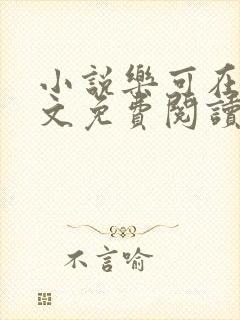 小説樂可在
文免費閱讀
不言喻